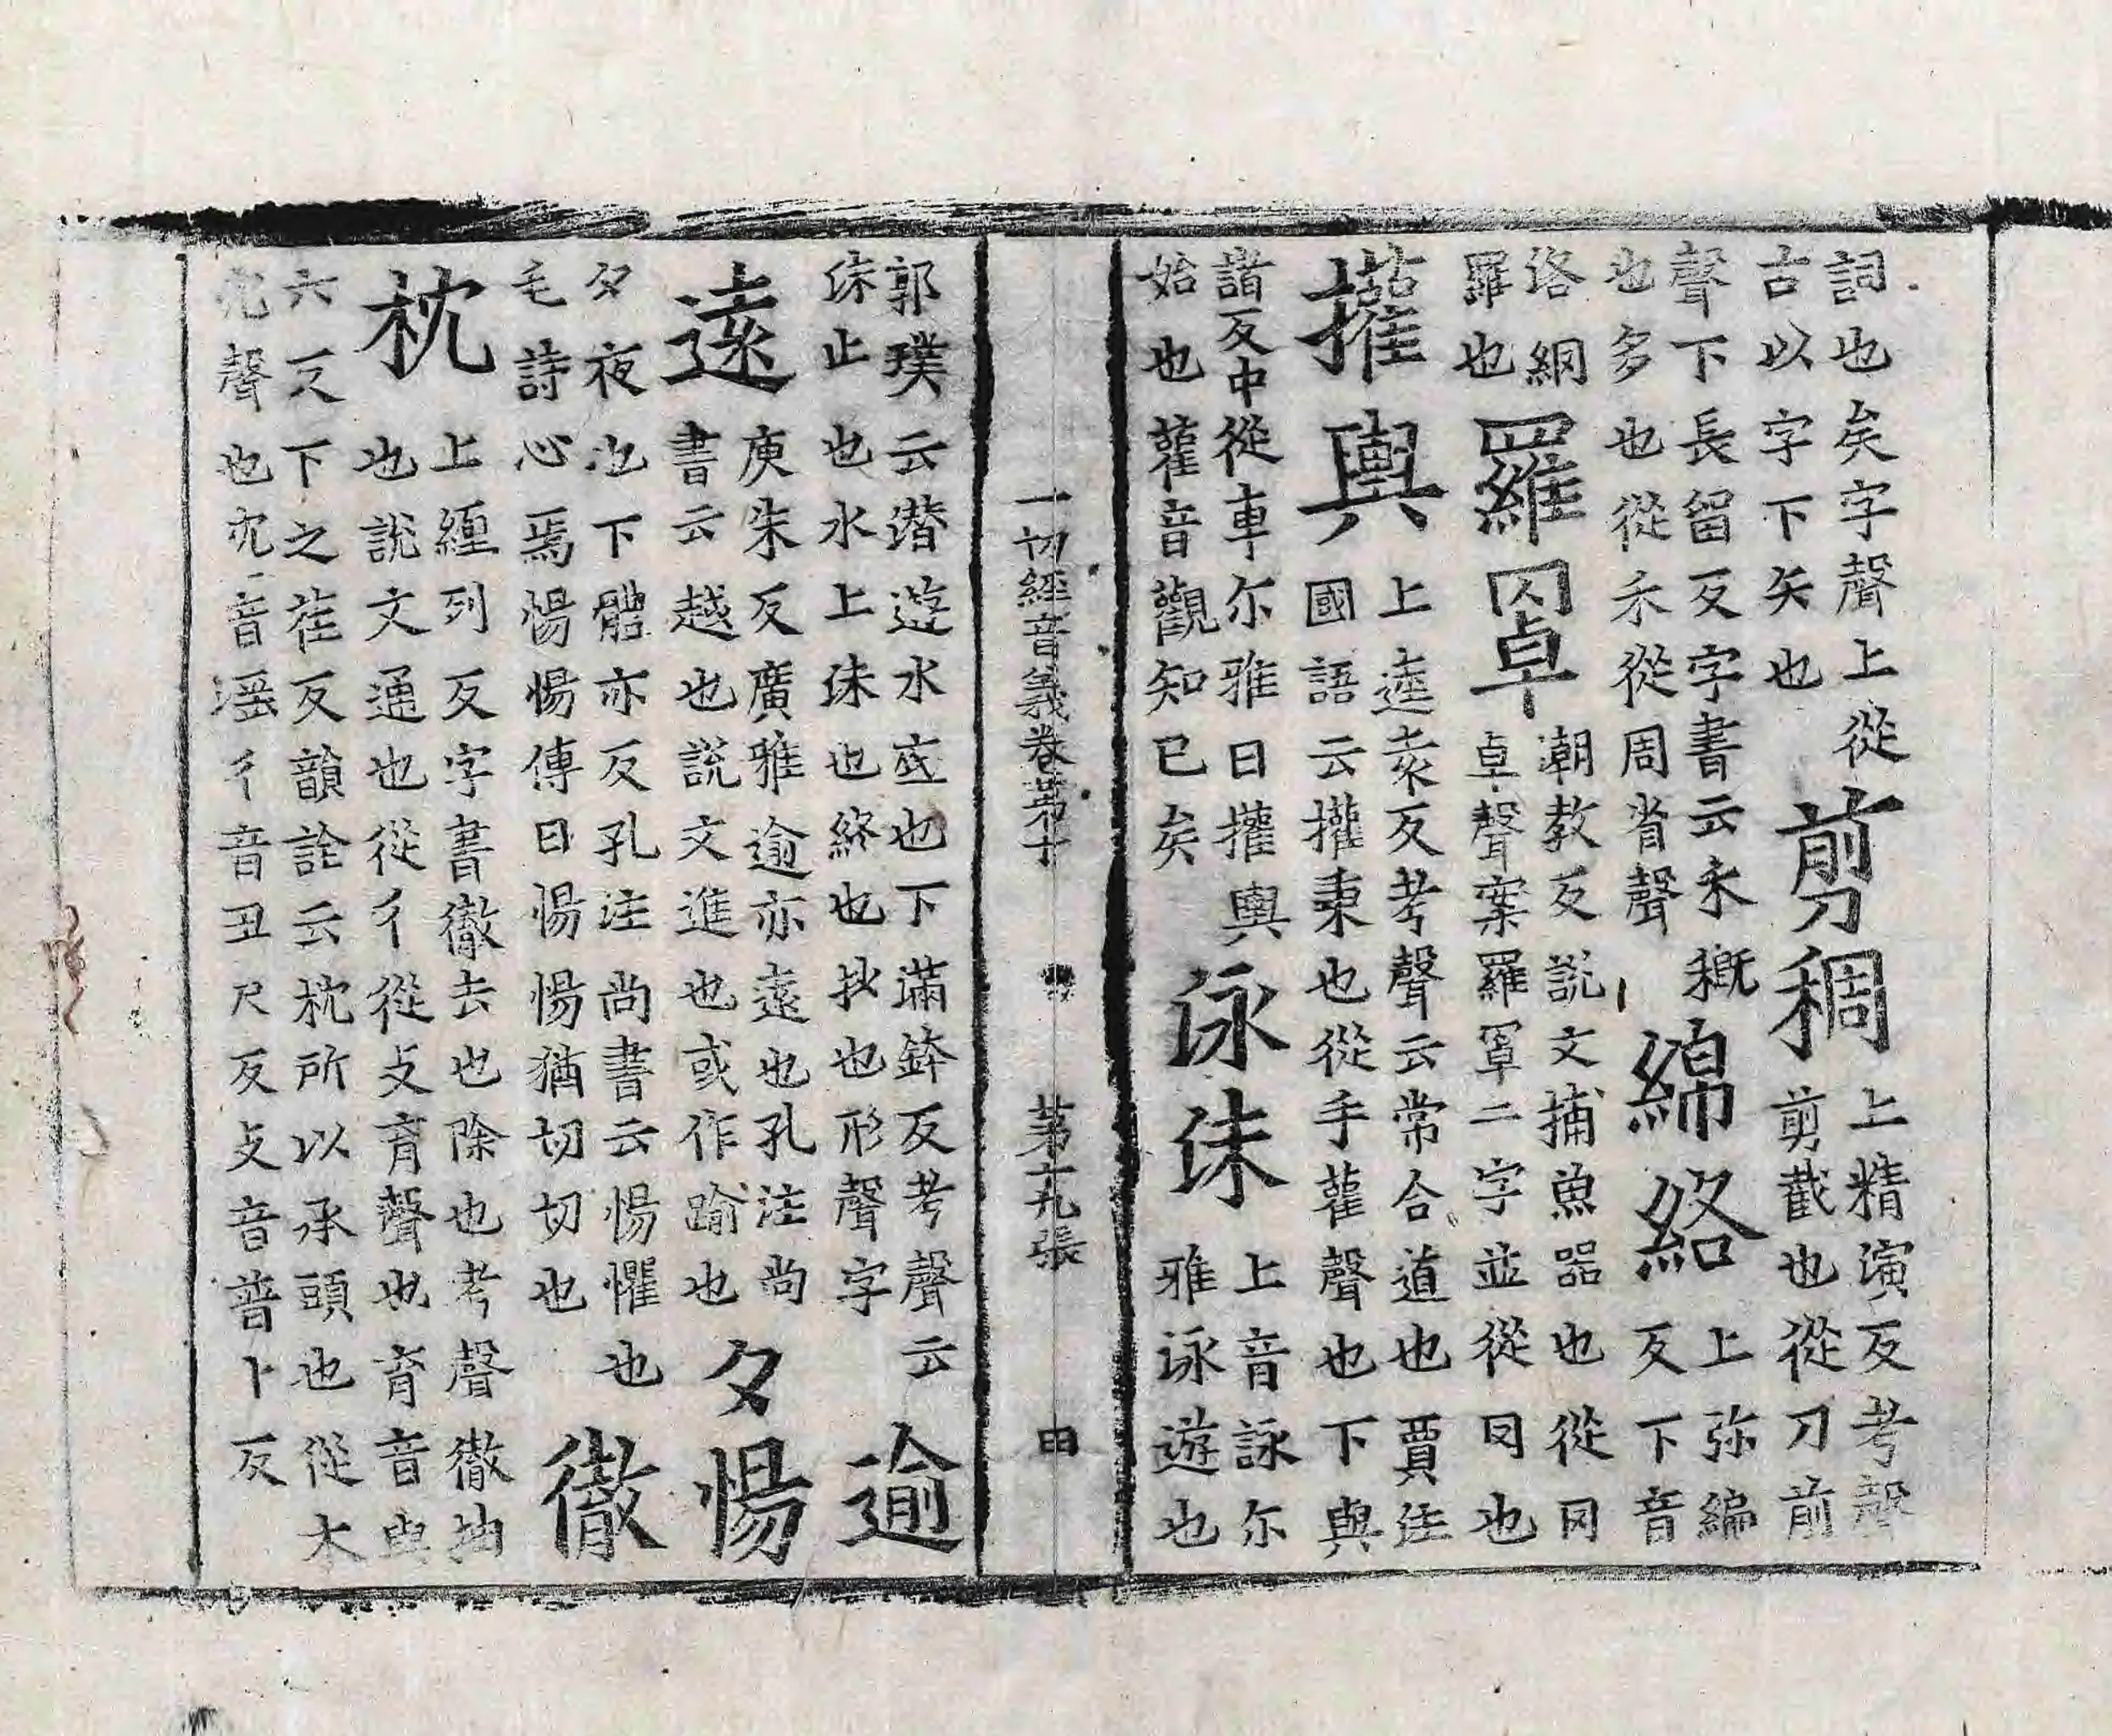 詞也矣字聲上從
古以字下矢也
剪稠
上精演反考聲
剪截也從刀前
聲下長留反字書云未穊
也多也從禾從周省聲
綿絡
上弥編
反下音
洛網
羅也
羅罩
潮教反說文捕魚器也從冈
卓聲案羅罩二字並從罔也
㩲輿
上逵袁反考聲云常合道也賈注
國語云㩲秉也從手雚聲也下與
諸反中從車尒雅曰㩲輿
始也雚音觀知已矣
泳沬
上音詠尒
雅泳遊也
郭璞云潛遊水底也下滿鉢反考聲云
沬止也水上沬也終也抄也形聲字
逾
遠
庾朱反廣雅逾亦遠也孔注尚
書云越也說文進也或作踰也
夕惕
夕夜也下體亦反孔注尚書云惕懼也
毛詩心焉惕惕傳曰惕惕猶切切也
徹
枕
上纏列反字書徹去也除也考聲徹抽
也說文通也從彳從攴育聲也育音與
六反下之荏反韻詮云枕所以承頭也從木
冘聲也冘音謡彳音丑尺反攴音普卜反
一切經音義卷第十
第十九張